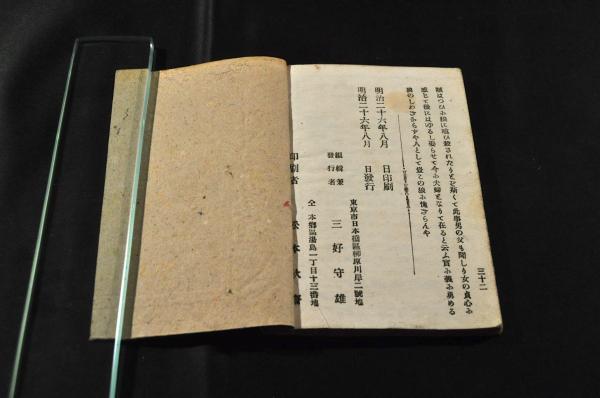 三十二
頭はつひふ狼に喰ひ殺されたりとぞ斯くて此事男の父も聞しり女の貞心ふ
感じて後にはゆるし娶らせて今ふ夫婦となりて在ると云ふ實ふ義ふ勇める
狼のしわざかな人として豈この狼ふ愧ざらんや
明治二十六年八月 日印刷
明治二十六年八月 日發行
東京市日本橋區柳原川岸二號地
編輯兼發行者 三好守雄
仝 本鄕區湯島一丁目十三番地
印刷者 松本